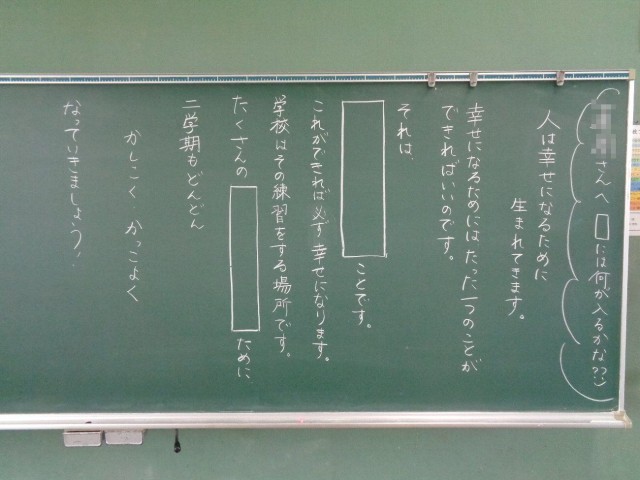 さんへ □には何が入るかな??
人は幸せになるために
生まれてきます。
幸せになるためには、たった一つのことが
できればいいのです。
それは、
ことです。
これができれば必ず幸せになります。
学校はその練習をする場所です。
たくさんの
ために
二学期もどんどん
かしこく かっこよく
なっていきましょう!